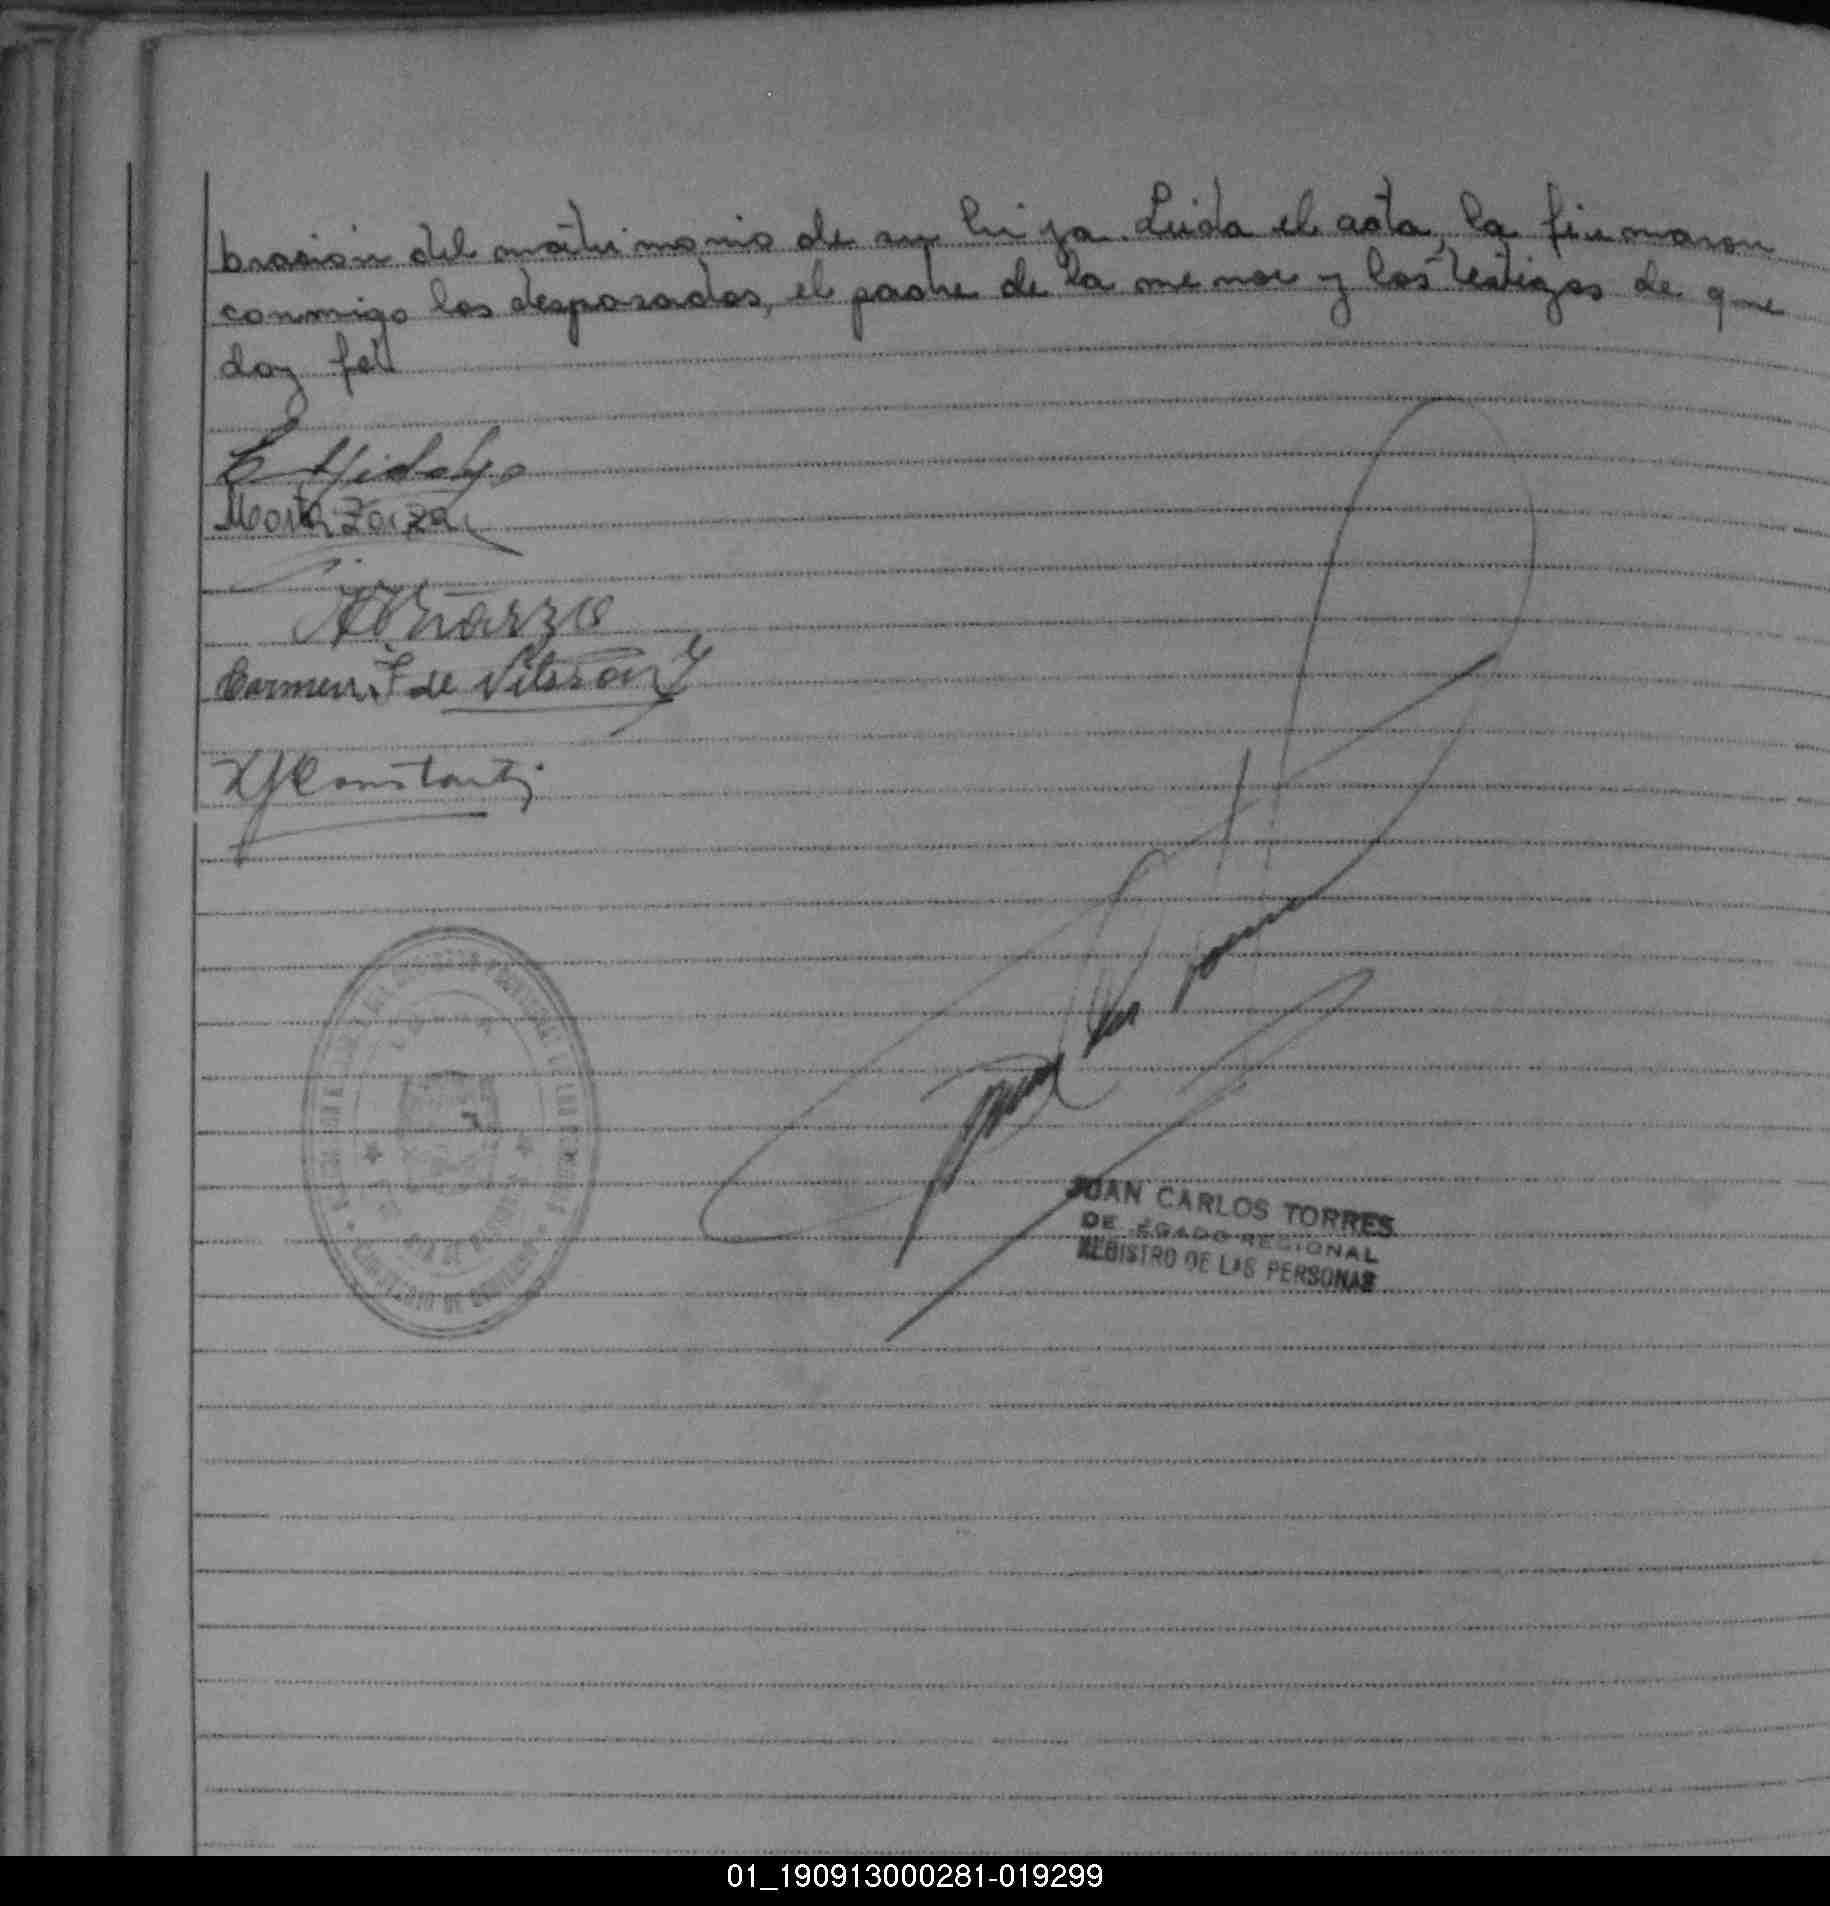 bración del matrimonio de su hija. Leida el acta, la firmaron
conmigo los desposados, el padre de la menor y los testigos de que
doy fe
E Hidalgo
Marta Zarza
Carmen F de
JUAN CARLOS TORRES
DELEGADO REGIONAL
REGISTRO DE LAS PERSONAS
01_190913000281-019299